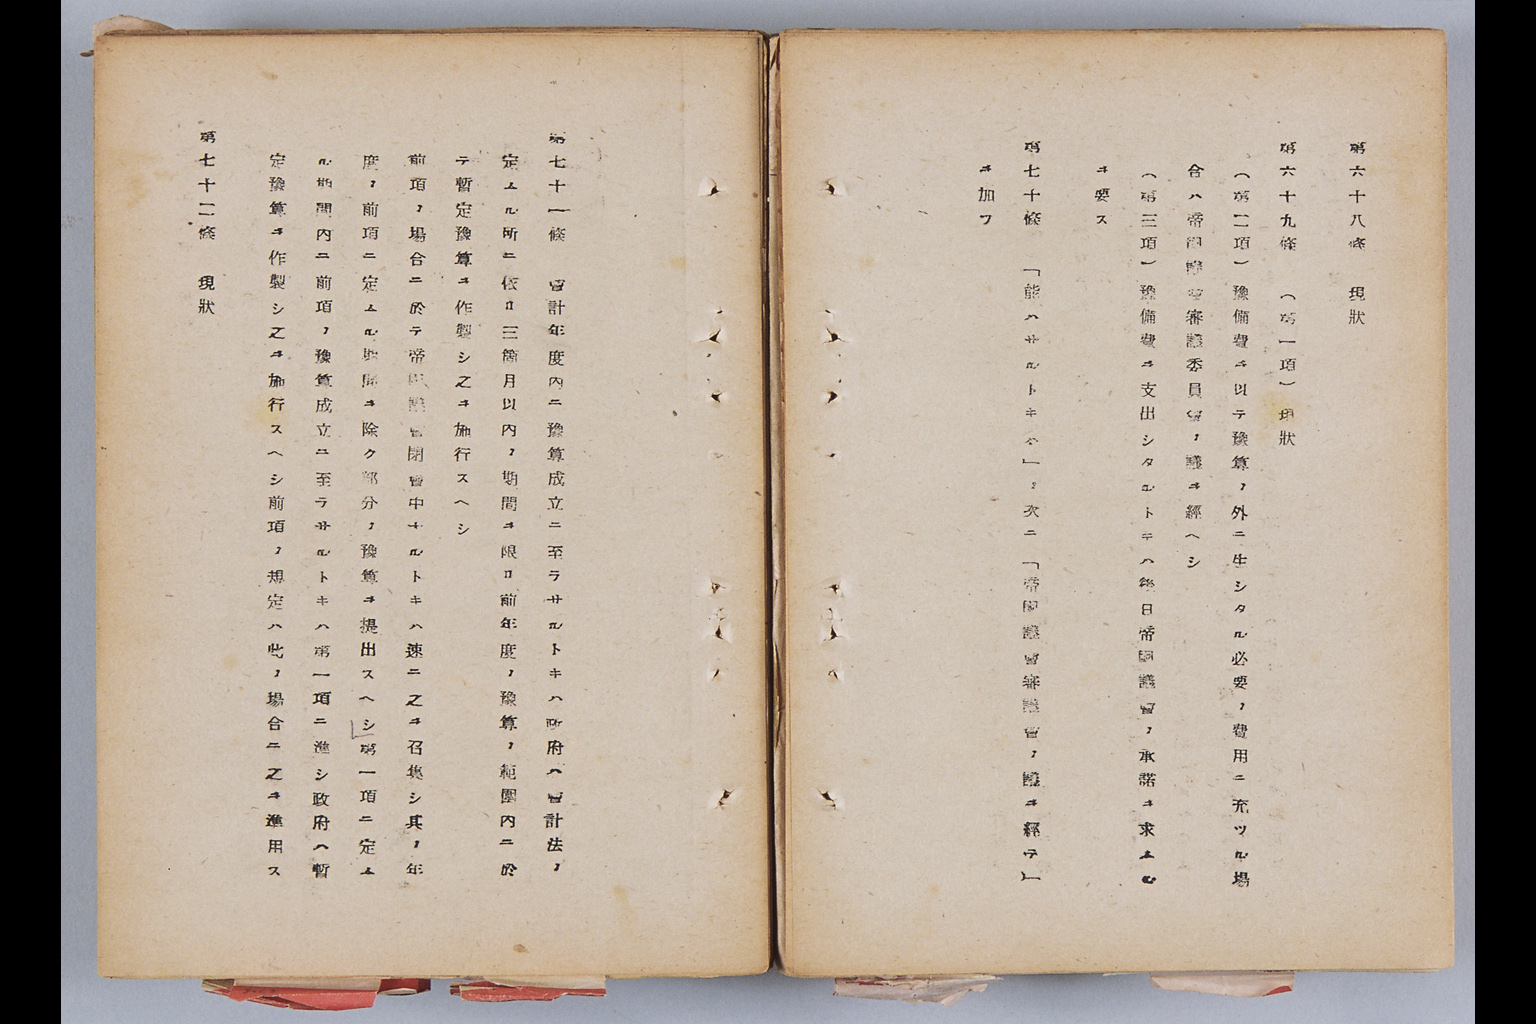 第六十八條　現狀
第六十九條　（第一項）現狀
（第二項）豫備費ヲ以テ豫算ノ外ニ生シタル必要ノ費用ニ充ツル場
合ハ帝國議會審議委員會ノ議ヲ經ヘシ
（第三項）豫備費ヲ支出シタルトキハ後日帝國議會ノ承諾ヲ求ムル
ヲ要ス
第七十條　「能ハサルトキハ」ノ次ニ「帝國議會審議會ノ議ヲ經テ」
ヲ加フ
第七十一條　會計年度內ニ豫算成立ニ至ラサルトキハ政府ハ會計法ノ
定ムル所ニ依リ三箇月以內ノ期間ヲ限リ前年度ノ豫算ノ範圍內ニ於
テ暫定豫算ヲ作製シ之ヲ施行スヘシ
前項ノ場合ニ於テ帝國議會閉會中ナルトキハ速ニ之ヲ召集シ其ノ年
度ノ前項ニ定ムル期間ヲ除ク部分ノ豫算ヲ提出スヘシ第一項ニ定ム
ル期間內ニ前項ノ豫算成立ニ至ラサルトキハ第一項ニ準シ政府ハ暫
定豫算ヲ作製シ之ヲ施行スヘシ前項ノ規定ハ此ノ場合ニ之ヲ準用ス
第七十二條　現狀